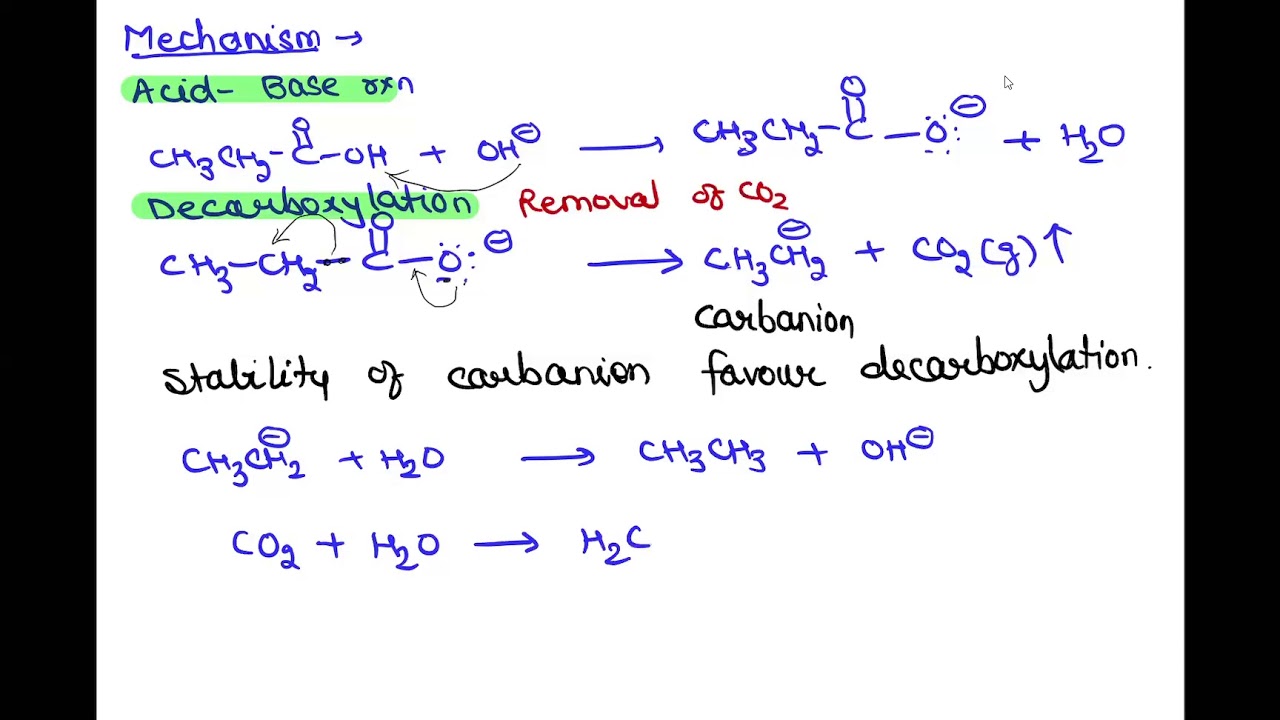 Mechanism →
Acid- Base rxn
CH₃CH₂-C(=O)-OH + OH⊖ → CH₃CH₂-C(=O)-O:⊖ + H₂O
Decarboxylation Removal of CO₂
CH₃-CH₂-C(=O)-O:⊖ → CH₃CH₂⊖ + CO₂(g)↑
carbanion
stability of carbanion favour decarboxylation.
CH₃CH₂⊖ + H₂O → CH₃CH₃ + OH⊖
CO₂ + H₂O → H₂C